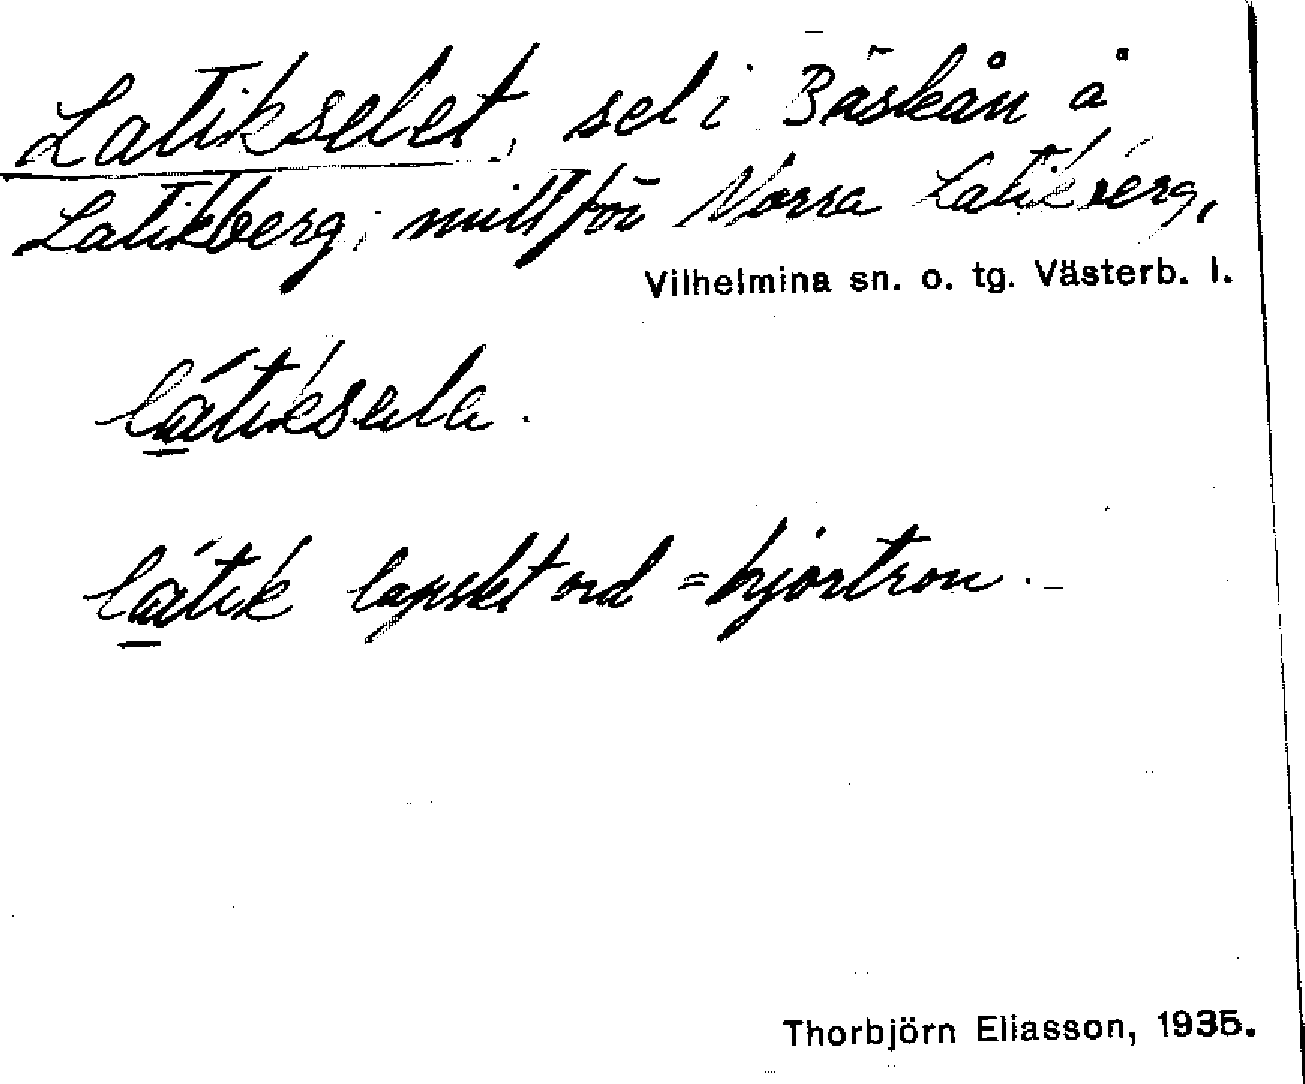 Latikselet, sel i Bäskån å
Latikberg; mitt för Norra Latikberg,
Vilhelmina sn. o. tg. Västerb. l.
lá̱tiksele.
lá̱tik lapskt ord = hjortron.
Thorbjörn Eliasson, 1935.